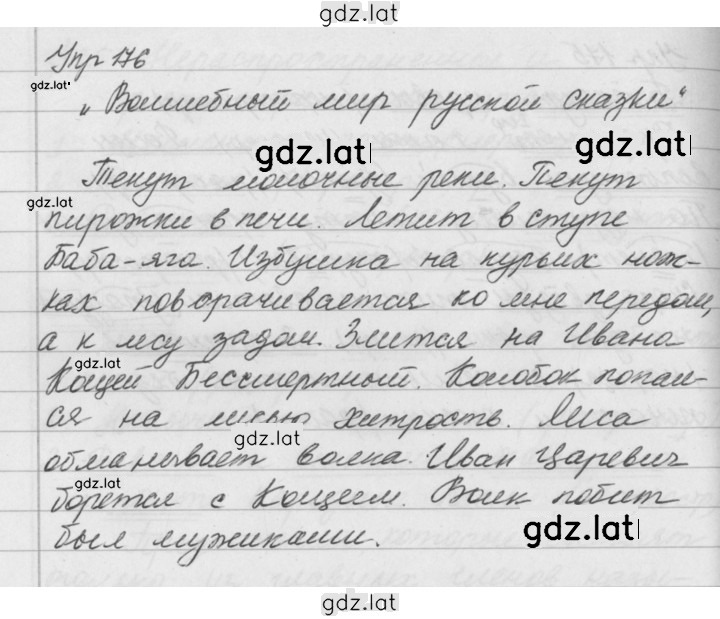 gdz.lat
Упр 176
gdz.lat
„Волшебный мир русской сказки“
gdz.lat
gdz.lat
Текут молочные реки. Пекут
gdz.lat
пирожки в печи. Летит в ступе
Баба-яга. Избушка на курьих нож-
ках поворачивается ко мне передом,
а к лесу задом. Злится на Ивана
gdz.lat
Кощей Бессмертный. Колобок попал-
ся на лисью хитрость. Лиса
gdz.lat
обманывает волка. Иван Царевич
gdz.lat
борется с Кощеем. Волк побит
был мужиками.
gdz.lat
gdz.lat